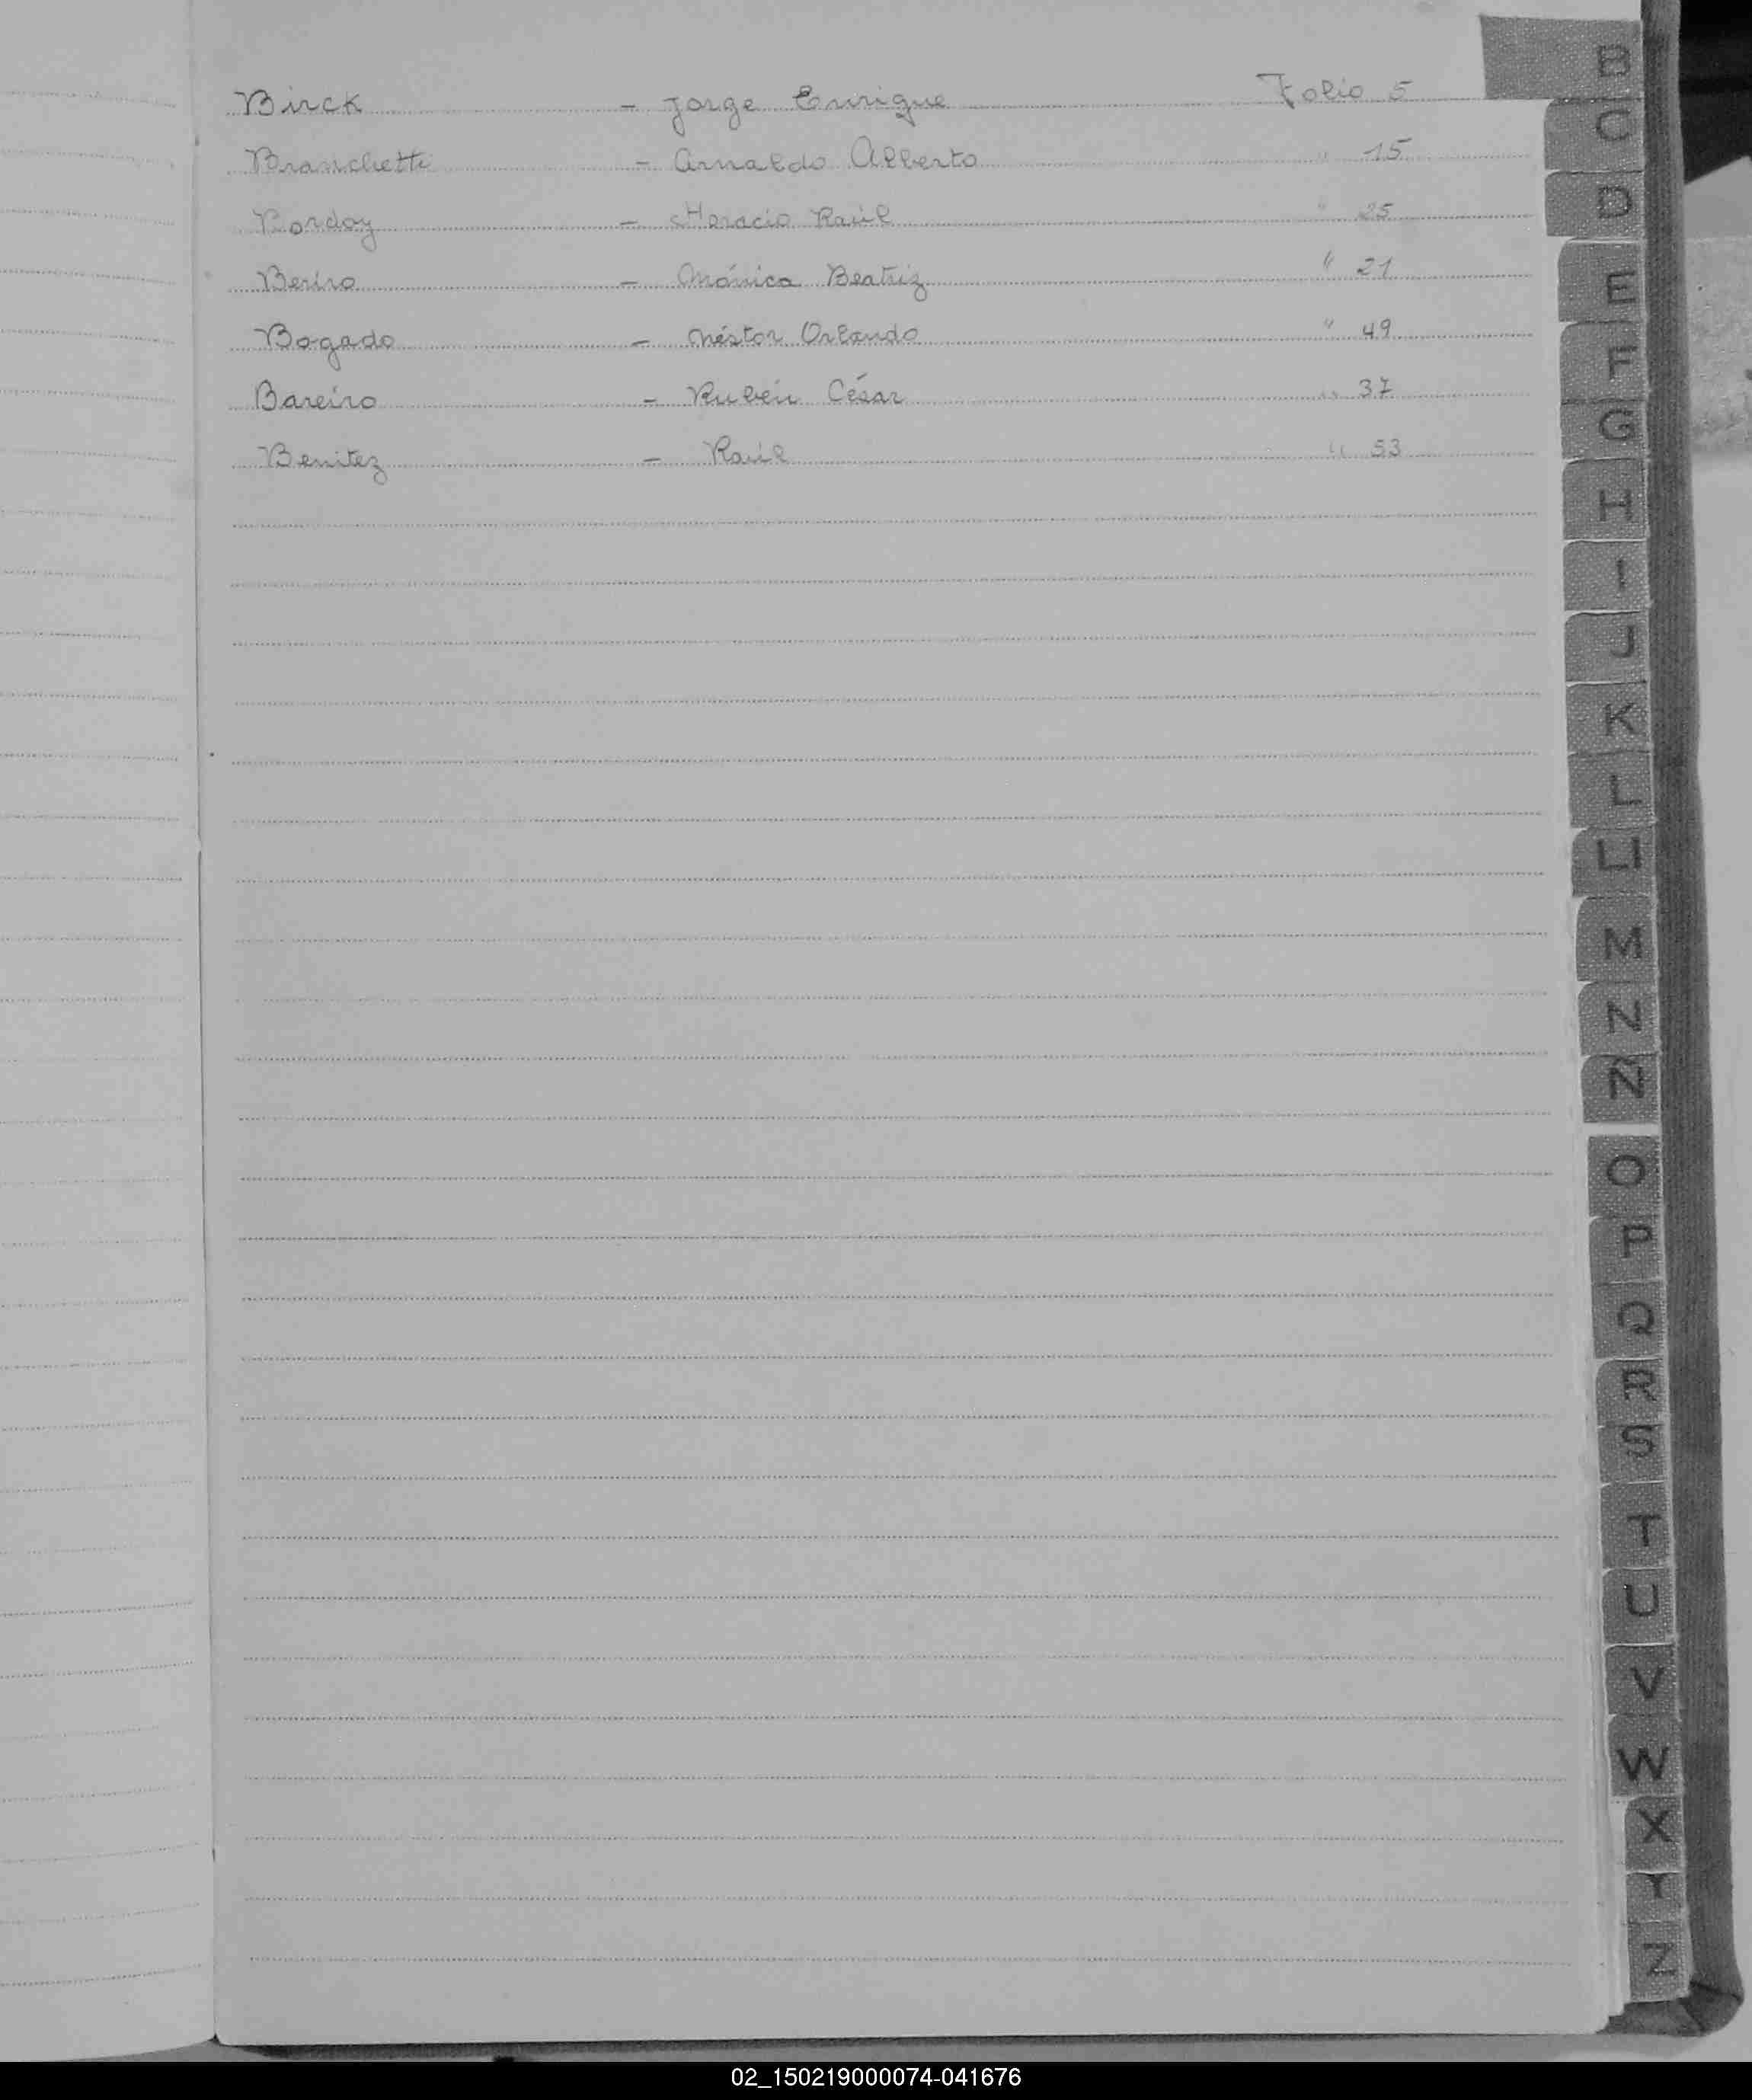 Birck - Jorge Enrique Folio 5
Branchetti - Arnaldo Alberto " 15
Bordoy - Horacio Raúl " 25
- Mónica Beatriz " 21
Bogado - Néstor Orlando " 49
Bareiro - Rubén César " 37
Benitez - Raúl " 53
B
C
D
E
F
G
H
I
J
K
L
Ll
M
N
Ñ
O
P
Q
R
S
T
U
V
W
X
Y
Z
02_150219000074-041676